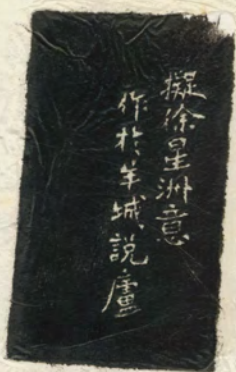 擬徐星洲意
作於羊城說廬